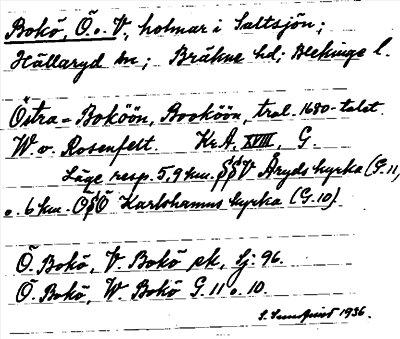 Bokö, Ö. o. V., holmar i Saltsjön;
Hällaryd sn; Bräkne hd; Blekinge l.
Östra-Boköön, Booköön, trol. 1680-talet.
W. v. Rosenfelt. Kr.A. XVIII, G.
Läge resp. 5,9 km. SSV Åryds kyrka (G.11,
o. 6 km. OSO Karlshamns kyrka (G.10).
Ö. Bokö, V. Bokö sk, Sj: 96.
Ö. Bokö, W. Bokö G. 11 o. 10.
S. 1936.